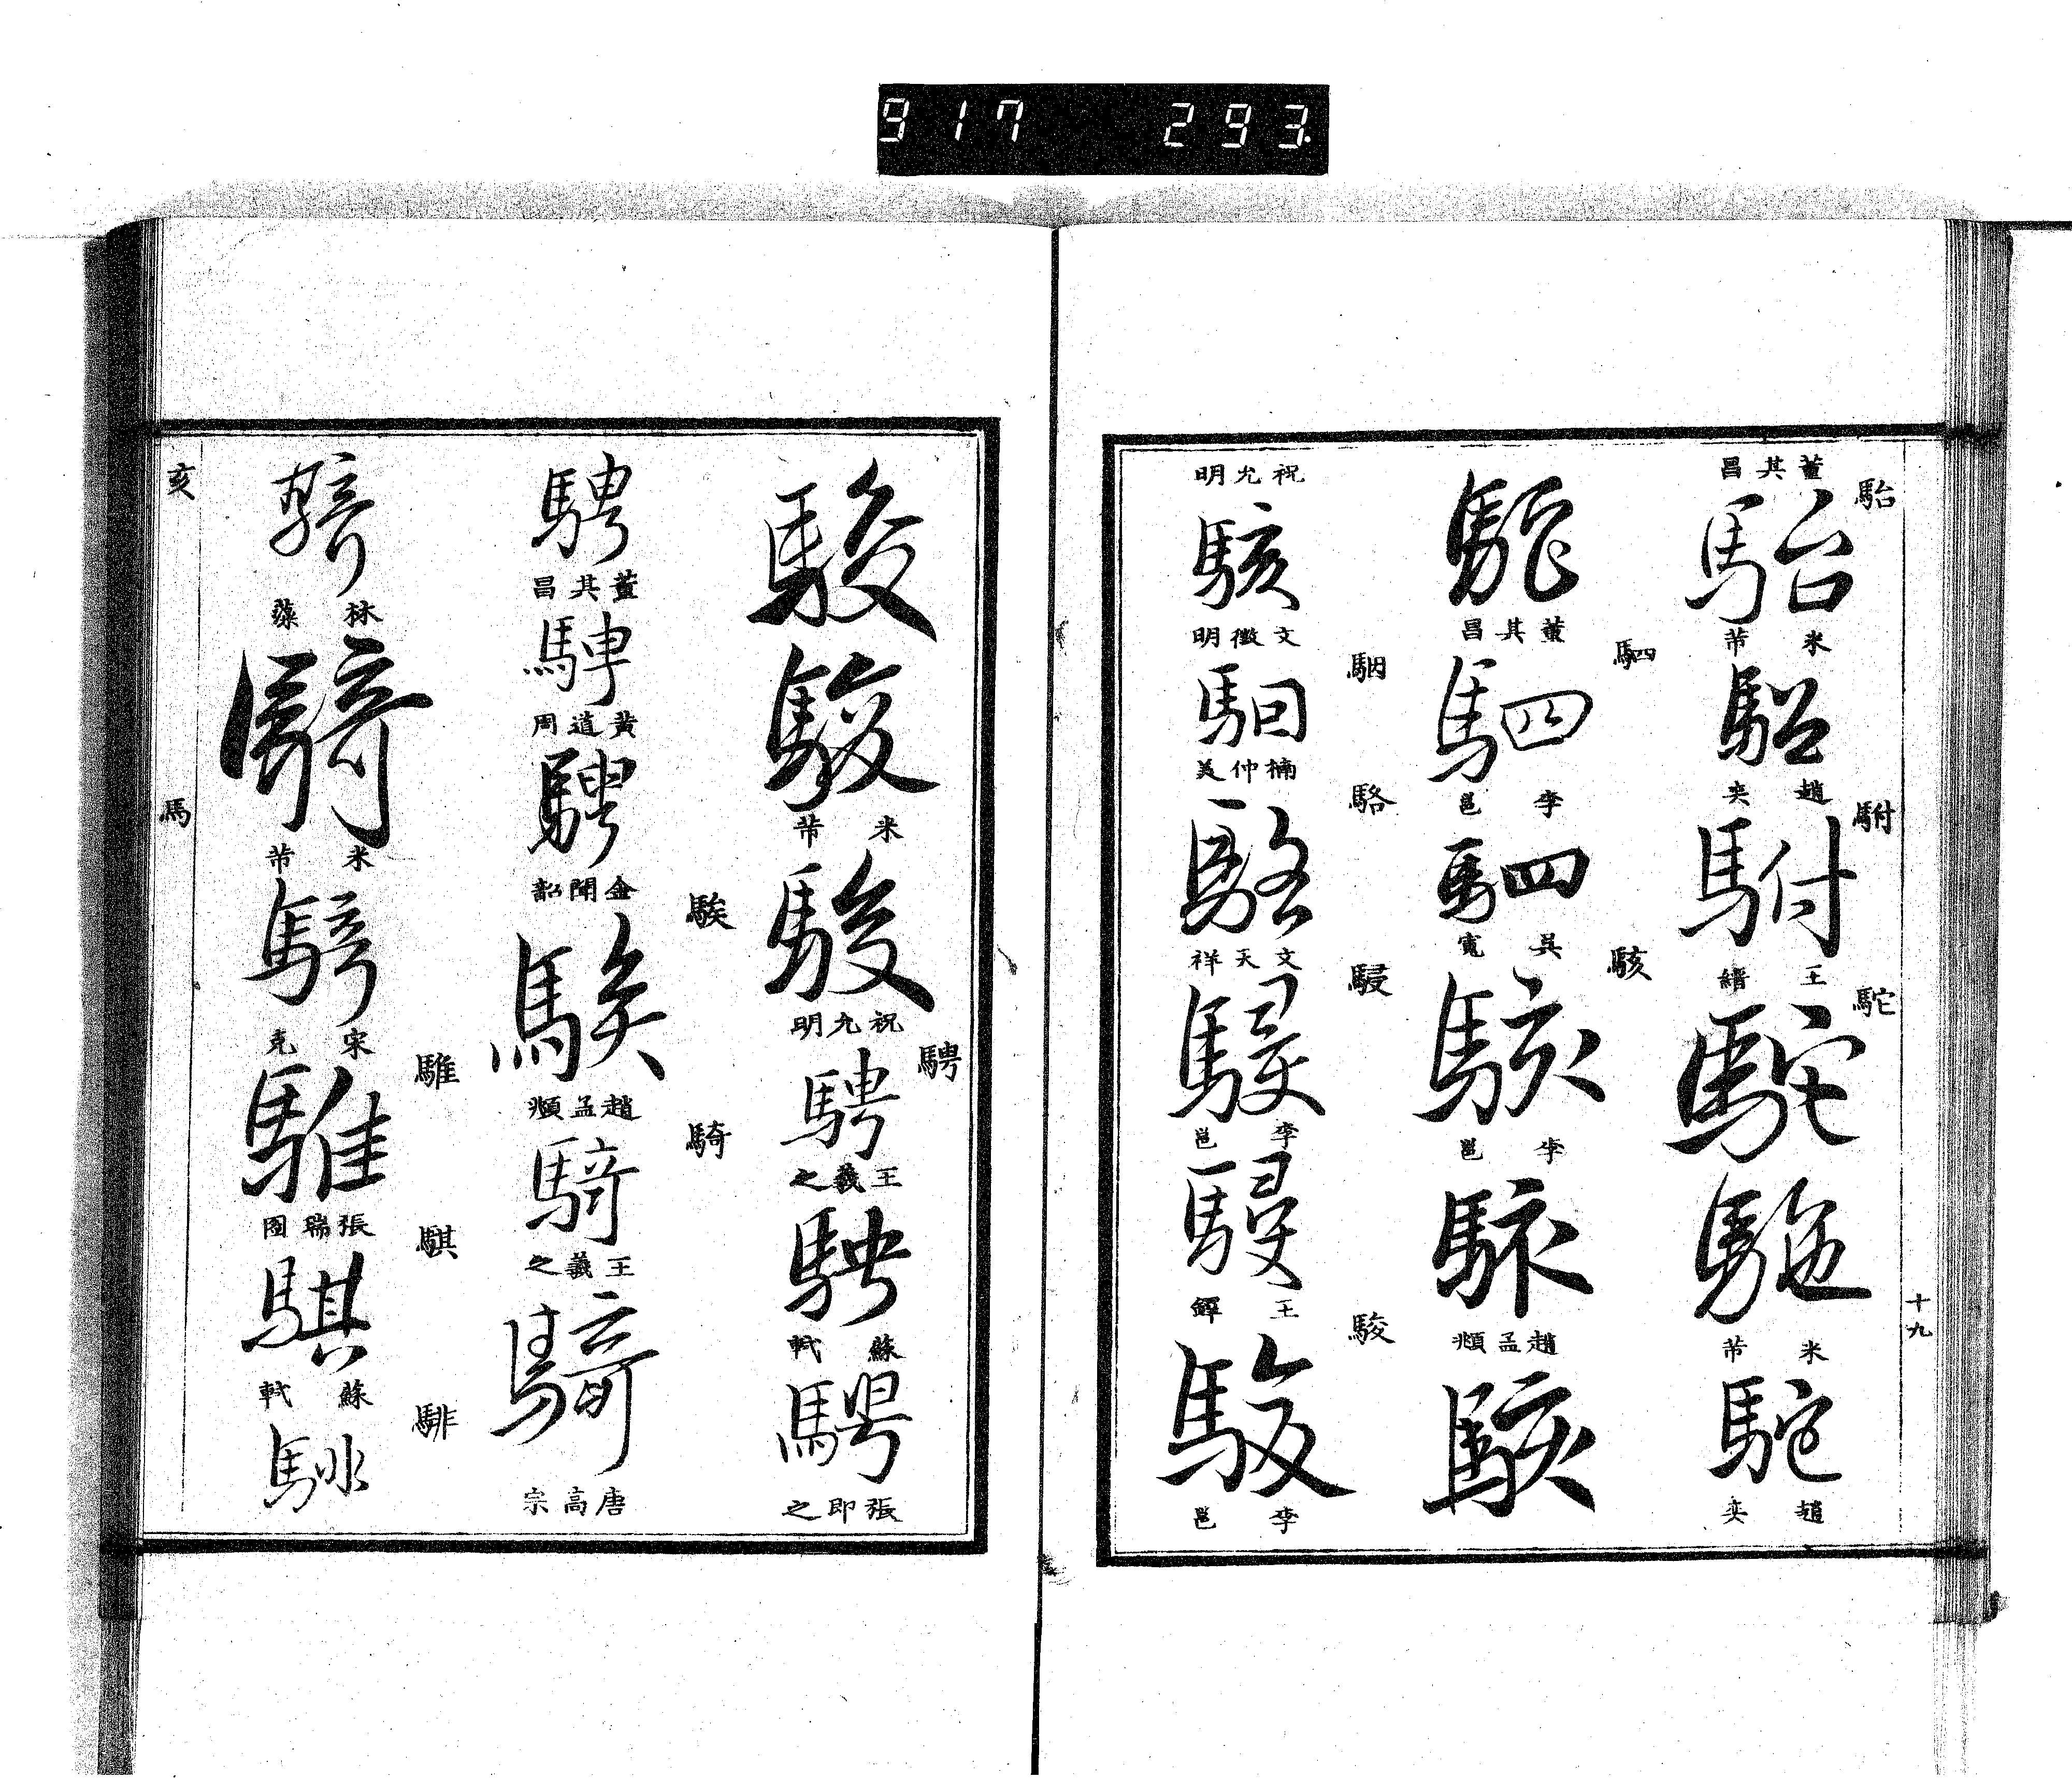 917 293.
駘
董其昌
駘
米芾
駘
趙奕
駙
駙
王縉
駝
駝
駝
米芾
駝
趙奕
十九
駝
董其昌
駟
駟
李邕
駟
吳寬
駭
駭
李邕
駭
趙孟頫
駭
祝允明
駭
文徵明
駰
駰
楠仲美
駱
駱
文天祥
駸
駸
李邕
駸
王鐸
駿
駿
李邕
駿
駿
米芾
駿
祝允明
騁
騁
王羲之
騁
蘇軾
騁
張即之
騁
董其昌
騁
黃道周
騁
金聞韶
騃
騃
趙孟頫
騎
騎
王羲之
騎
唐高宗
騎
林藻
騎
米芾
騎
宋克
騅
騅
張瑞圖
騏
騏
蘇軾
騑
騑
亥
馬